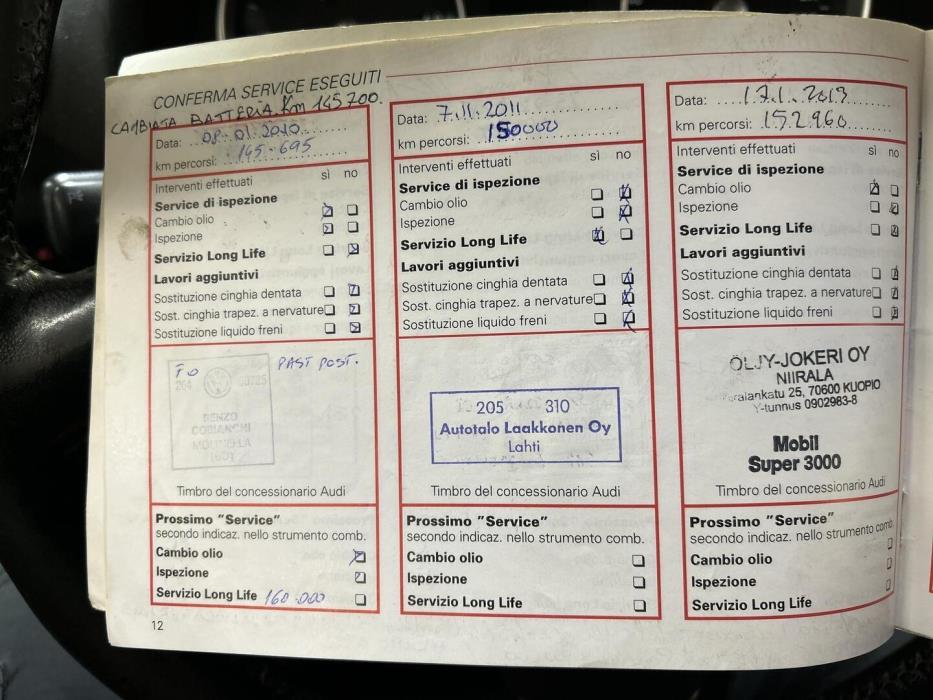 CONFERMA SERVICE ESEGUITI
CAMBIATA BATTERIA Km 145700.
Data: 08.01.2010
km percorsi: 145-695
Interventi effettuati sì no
Service di ispezione
Cambio olio
Ispezione
Servizio Long Life
Lavori aggiuntivi
Sostituzione cinghia dentata
Sost. cinghia trapez. a nervature
Sostituzione liquido freni
TO PAST POST.
264 00725
RENZO
COBIANCHI
MOLINELLA
Timbro del concessionario Audi
Prossimo "Service"
secondo indicaz. nello strumento comb.
Cambio olio
Ispezione
Servizio Long Life 160.000
12
Data: 7.11.2011
km percorsi: 150000
Interventi effettuati sì no
Service di ispezione
Cambio olio
Ispezione
Servizio Long Life
Lavori aggiuntivi
Sostituzione cinghia dentata
Sost. cinghia trapez. a nervature
Sostituzione liquido freni
205 310
Autotalo Laakkonen Oy
Lahti
Timbro del concessionario Audi
Prossimo "Service"
secondo indicaz. nello strumento comb.
Cambio olio
Ispezione
Servizio Long Life
Data: 17.1.2013
km percorsi: 152960
Interventi effettuati sì no
Service di ispezione
Cambio olio
Ispezione
Servizio Long Life
Lavori aggiuntivi
Sostituzione cinghia dentata
Sost. cinghia trapez. a nervature
Sostituzione liquido freni
ÖLJY-JOKERI OY
NIIRALA
25, 70600 KUOPIO
Y-tunnus 0902983-8
Mobil
Super 3000
Timbro del concessionario Audi
Prossimo "Service"
secondo indicaz. nello strumento comb.
Cambio olio
Ispezione
Servizio Long Life